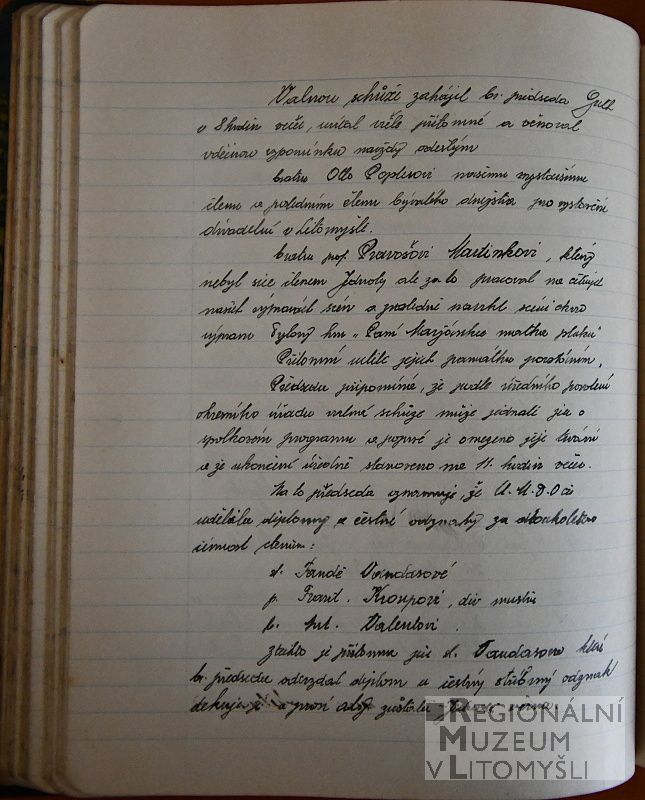 Valnou schůzi zahájil br. předseda
v 8 hodin večer, uvítal vřele přítomné a věnoval
vděčnou vzpomínku navždy odešlým
bratru Otto Poplerovi našemu nejstaršímu
členu a posledním členu bývalého družstva pro vystavění
divadelní v Litomyšli.
bratru prof. Pravošovi Martínkovi, který
nebyl sice členem Jednoty ale za to pracoval na četných
našich výpravách scén a posledně navrhl scénickou
výpravu Tylovy hry "Paní Marjánka matka pluku"
Přítomní uctili jejich památku povstáním.
Předseda připomíná, že podle úředního povolení
okresního úřadu valná schůze může jednati jen o
spolkovém programu a poprvé je omezeno její trvání
a že ukončení úředně stanoveno na 11. hodin večer.
Na to předseda oznamuje, že Ú.M.D.O.Č.
udělila diplomy a čestné odznaky za dlouholetou
činnost členům:
s. Fandě Vandasové
p. Frant. Kroupovi, dir. musea
b. Ant. Valentovi.
z těchto je přítomna jen s. Vandasová které
br. předseda odevzdal diplom a čestný stříbrný odznak
děkuje jí a prosí aby zůstala věrna.
REGIONÁLNÍ
MUZEUM
V LITOMYŠLI